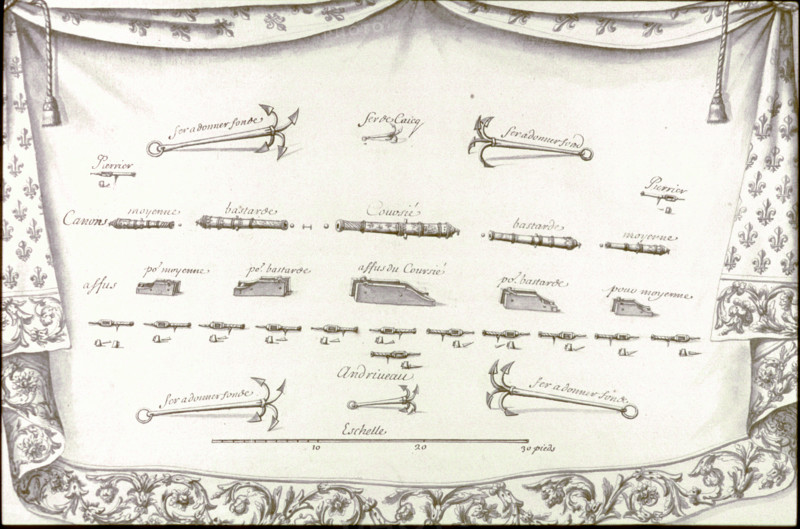 fer a donner fonde
fer de Caicq
fer a donner fond
Pierrier
Pierrier
Canons
moyenne
bastarde
Coursié
bastarde
moyenne
affus
po.r moyenne
po.r bastarde
affus du Coursié
po.r bastarde
pour moyenne
Andriveau
fer a donner fonde
fer a donner fonde
Eschelle
10 20 30 pieds